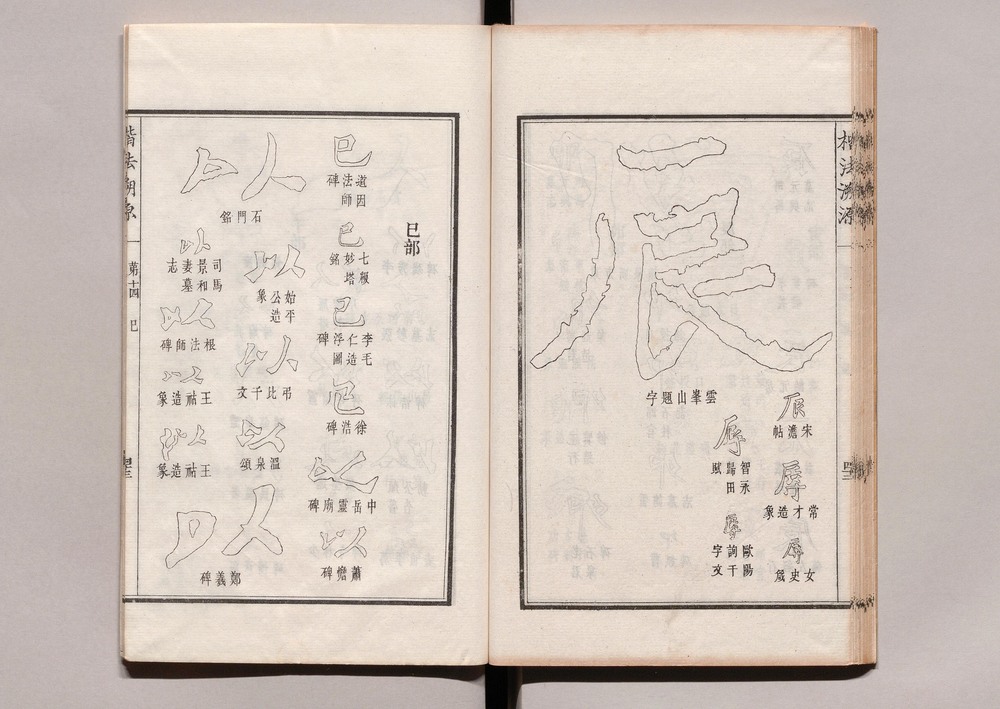 楷法溯源
辰
宋儋帖
辱
常才造象
辱
女史箴
辱
智永歸田賦
辱
歐陽詢千字文
辰
雲峯山題字
巳部
巳
道因法師碑
巳
七妙塔銘
巳
李毛仁造浮圖碑
㠯
徐浩碑
以
中岳靈廟碑
以
蕭憺碑
以
石門銘
以
始平公造象
以
弔比干文
以
溫泉頌
以
鄭羲碑
以
司馬景和妻墓志
以
根法師碑
以
王祜造象
以
王祜造象
楷法溯源
第十四
巳